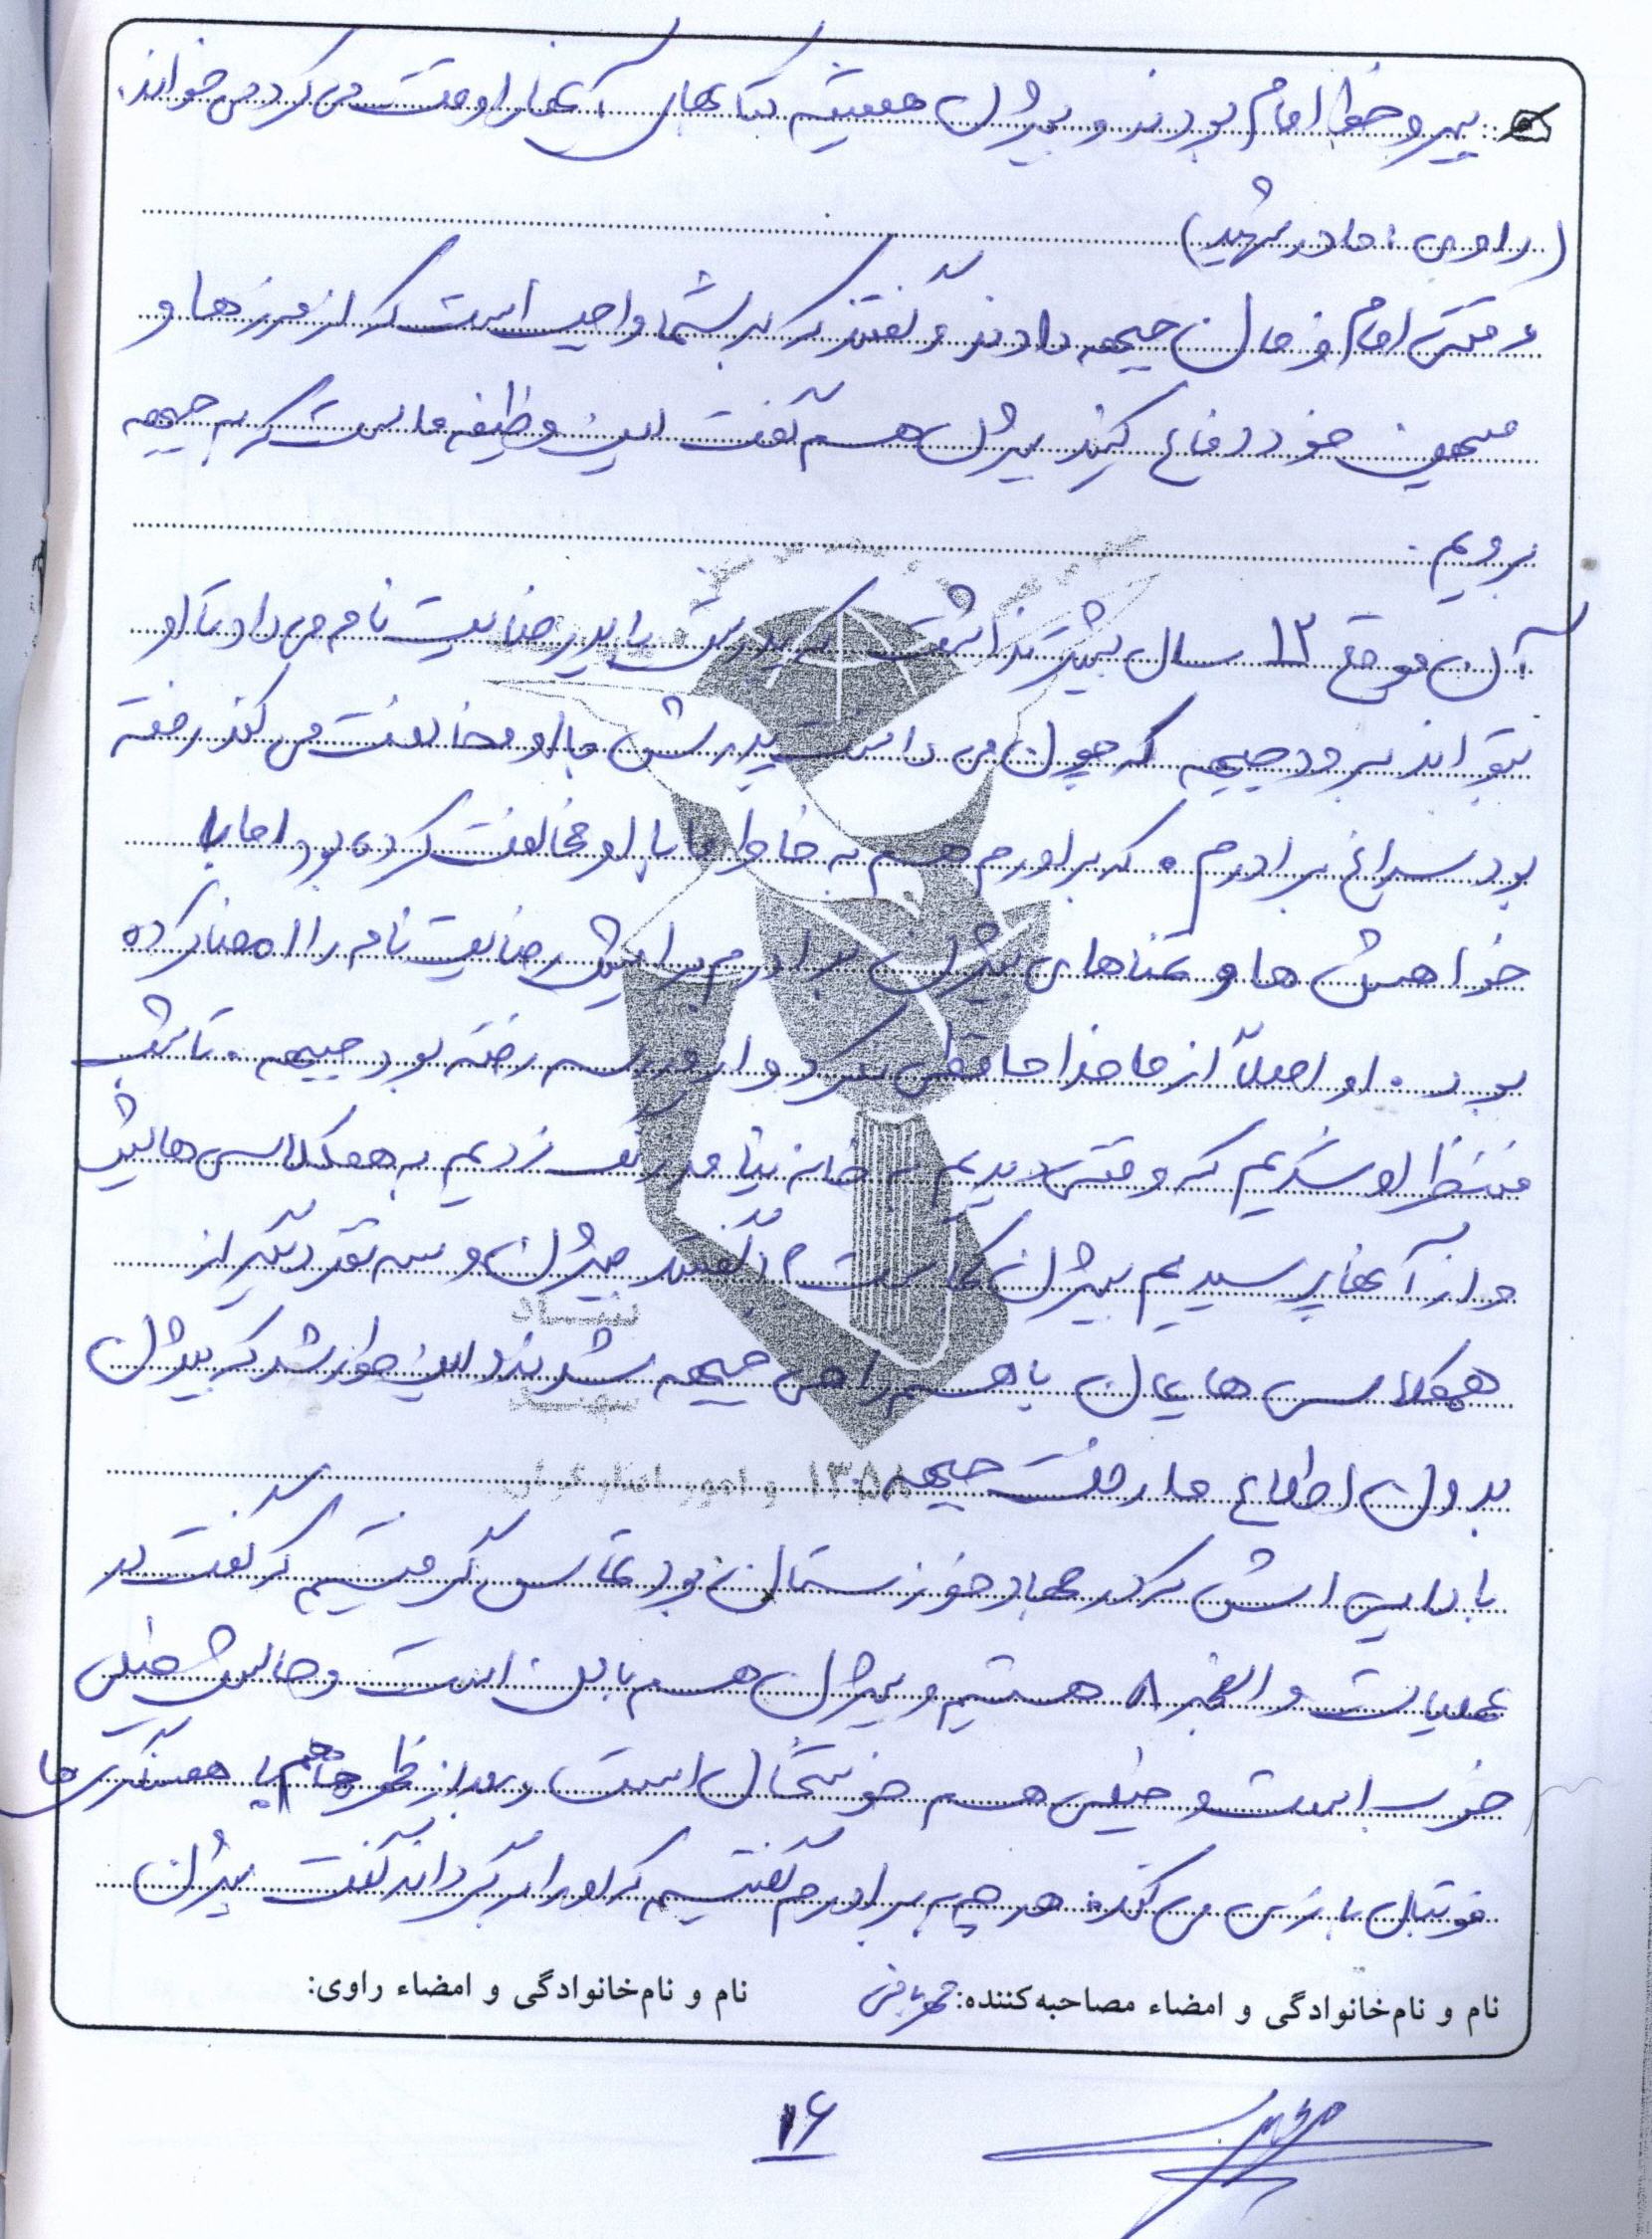 پیرو خط امام بودند و بیژن همیشه کتابهای آنها را دقت می کرد می خواند.
(راوی: مادر شهید)
وقتی امام فرمان جبهه دادند و گفتند که بر شما واجب است که از مرزها و
میهن خود دفاع کنید بیژن هم گفت این وظیفه ماست که به جبهه
برویم.
آن موقع ۱۳ سال بیشتر نداشت که پدرش باید رضایت نامه می داد تا او
بتواند برود جبهه که چون می دانست پدرش با او مخالفت می کند رفته
بود سراغ برادرم. که برادرم هم به خاطر ما با او مخالفت کرده بود اما با
خواهش ها و تمناهای بیژن برادرم برایش رضایت نامه را امضا کرده
بود. او اصلاً از ما خداحافظی نکرد و از مدرسه رفته بود جبهه. تا شب
منتظر او شدیم که وقتی دیدیم به خانه نیامد زنگ زدیم به همکلاسی هایش
و از آنها پرسیدیم بیژن کجاست؟ گفتند بیژن و سه نفر دیگر از
همکلاسی هایمان با هم راهی جبهه شدند و این طور شد که بیژن
بدون اطلاع ما رفت جبهه.
با دایی اش که در جهاد خوزستان بود تماس گرفتیم که گفت در
عملیات والفجر ۸ هستیم و بیژن هم با من است و حالش خیلی
خوب است و خیلی هم خوشحال است بعد از ظهرها هم با همسنگری ها
فوتبال بازی می کند. هر چه به برادرم گفتیم که او را برگرداند گفت بیژن
نام و نام‌خانوادگی و امضاء مصاحبه‌کننده: نام و نام‌خانوادگی و امضاء راوی:
۱۶